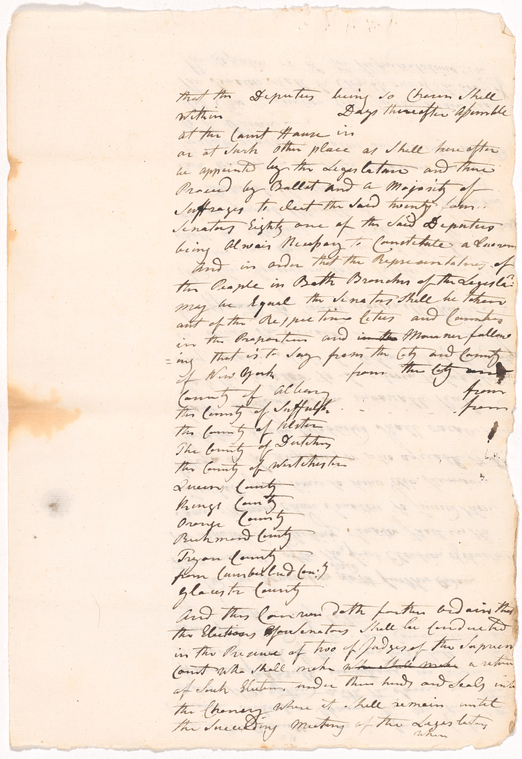 that the Deputies being so Chosen Shall
within Days thereafter Assemble
at the Court House in
or at Such other place as Shall hereafter
be appointed by the Legislature and there
Proceed by Ballot and a Majority of
Suffrages to elect the said twenty four
Senators Eighty one of the Said Deputies
being Always Necessary to Constitute a Quorum
And in order that the Representatives of
the People in Both Branches of the Legisla
may be Equal the Senators Shall be taken
out of the Respective Cities and Counties
in the Proportion and Manner follow
=ing that is to Say from the City and County
of New York from the City and
County of Albany from
the County of Suffolk from
the County of Ulster
The County of Dutchess
the County of Westchester
Queens County
Kings County
Orange County
Richmond County
Tryon County
from Cumberland Coun:y
Glocester County
And this Conven doth further ordain that
the Elections of Senators Shall be Conducted
in the Presence of two of Judges of the Supreme
Court who shall make who shall make a return
of Such Elections under their hands and Seals into
the Chancery where it shall remain until
the Succeeding Meeting of the Legislature
when